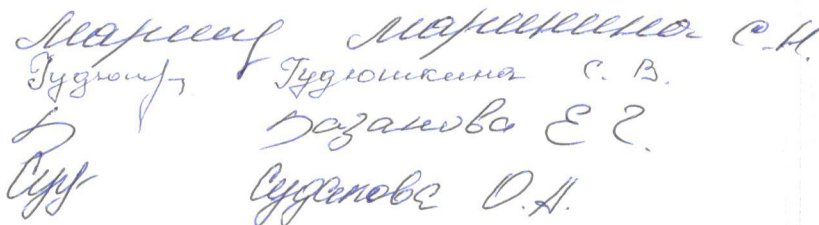 Марин Маринина С.Н.
Гудюшк Гудюшкина С. В.
Б Базанова Е Г.
Суд Суданова О.А.